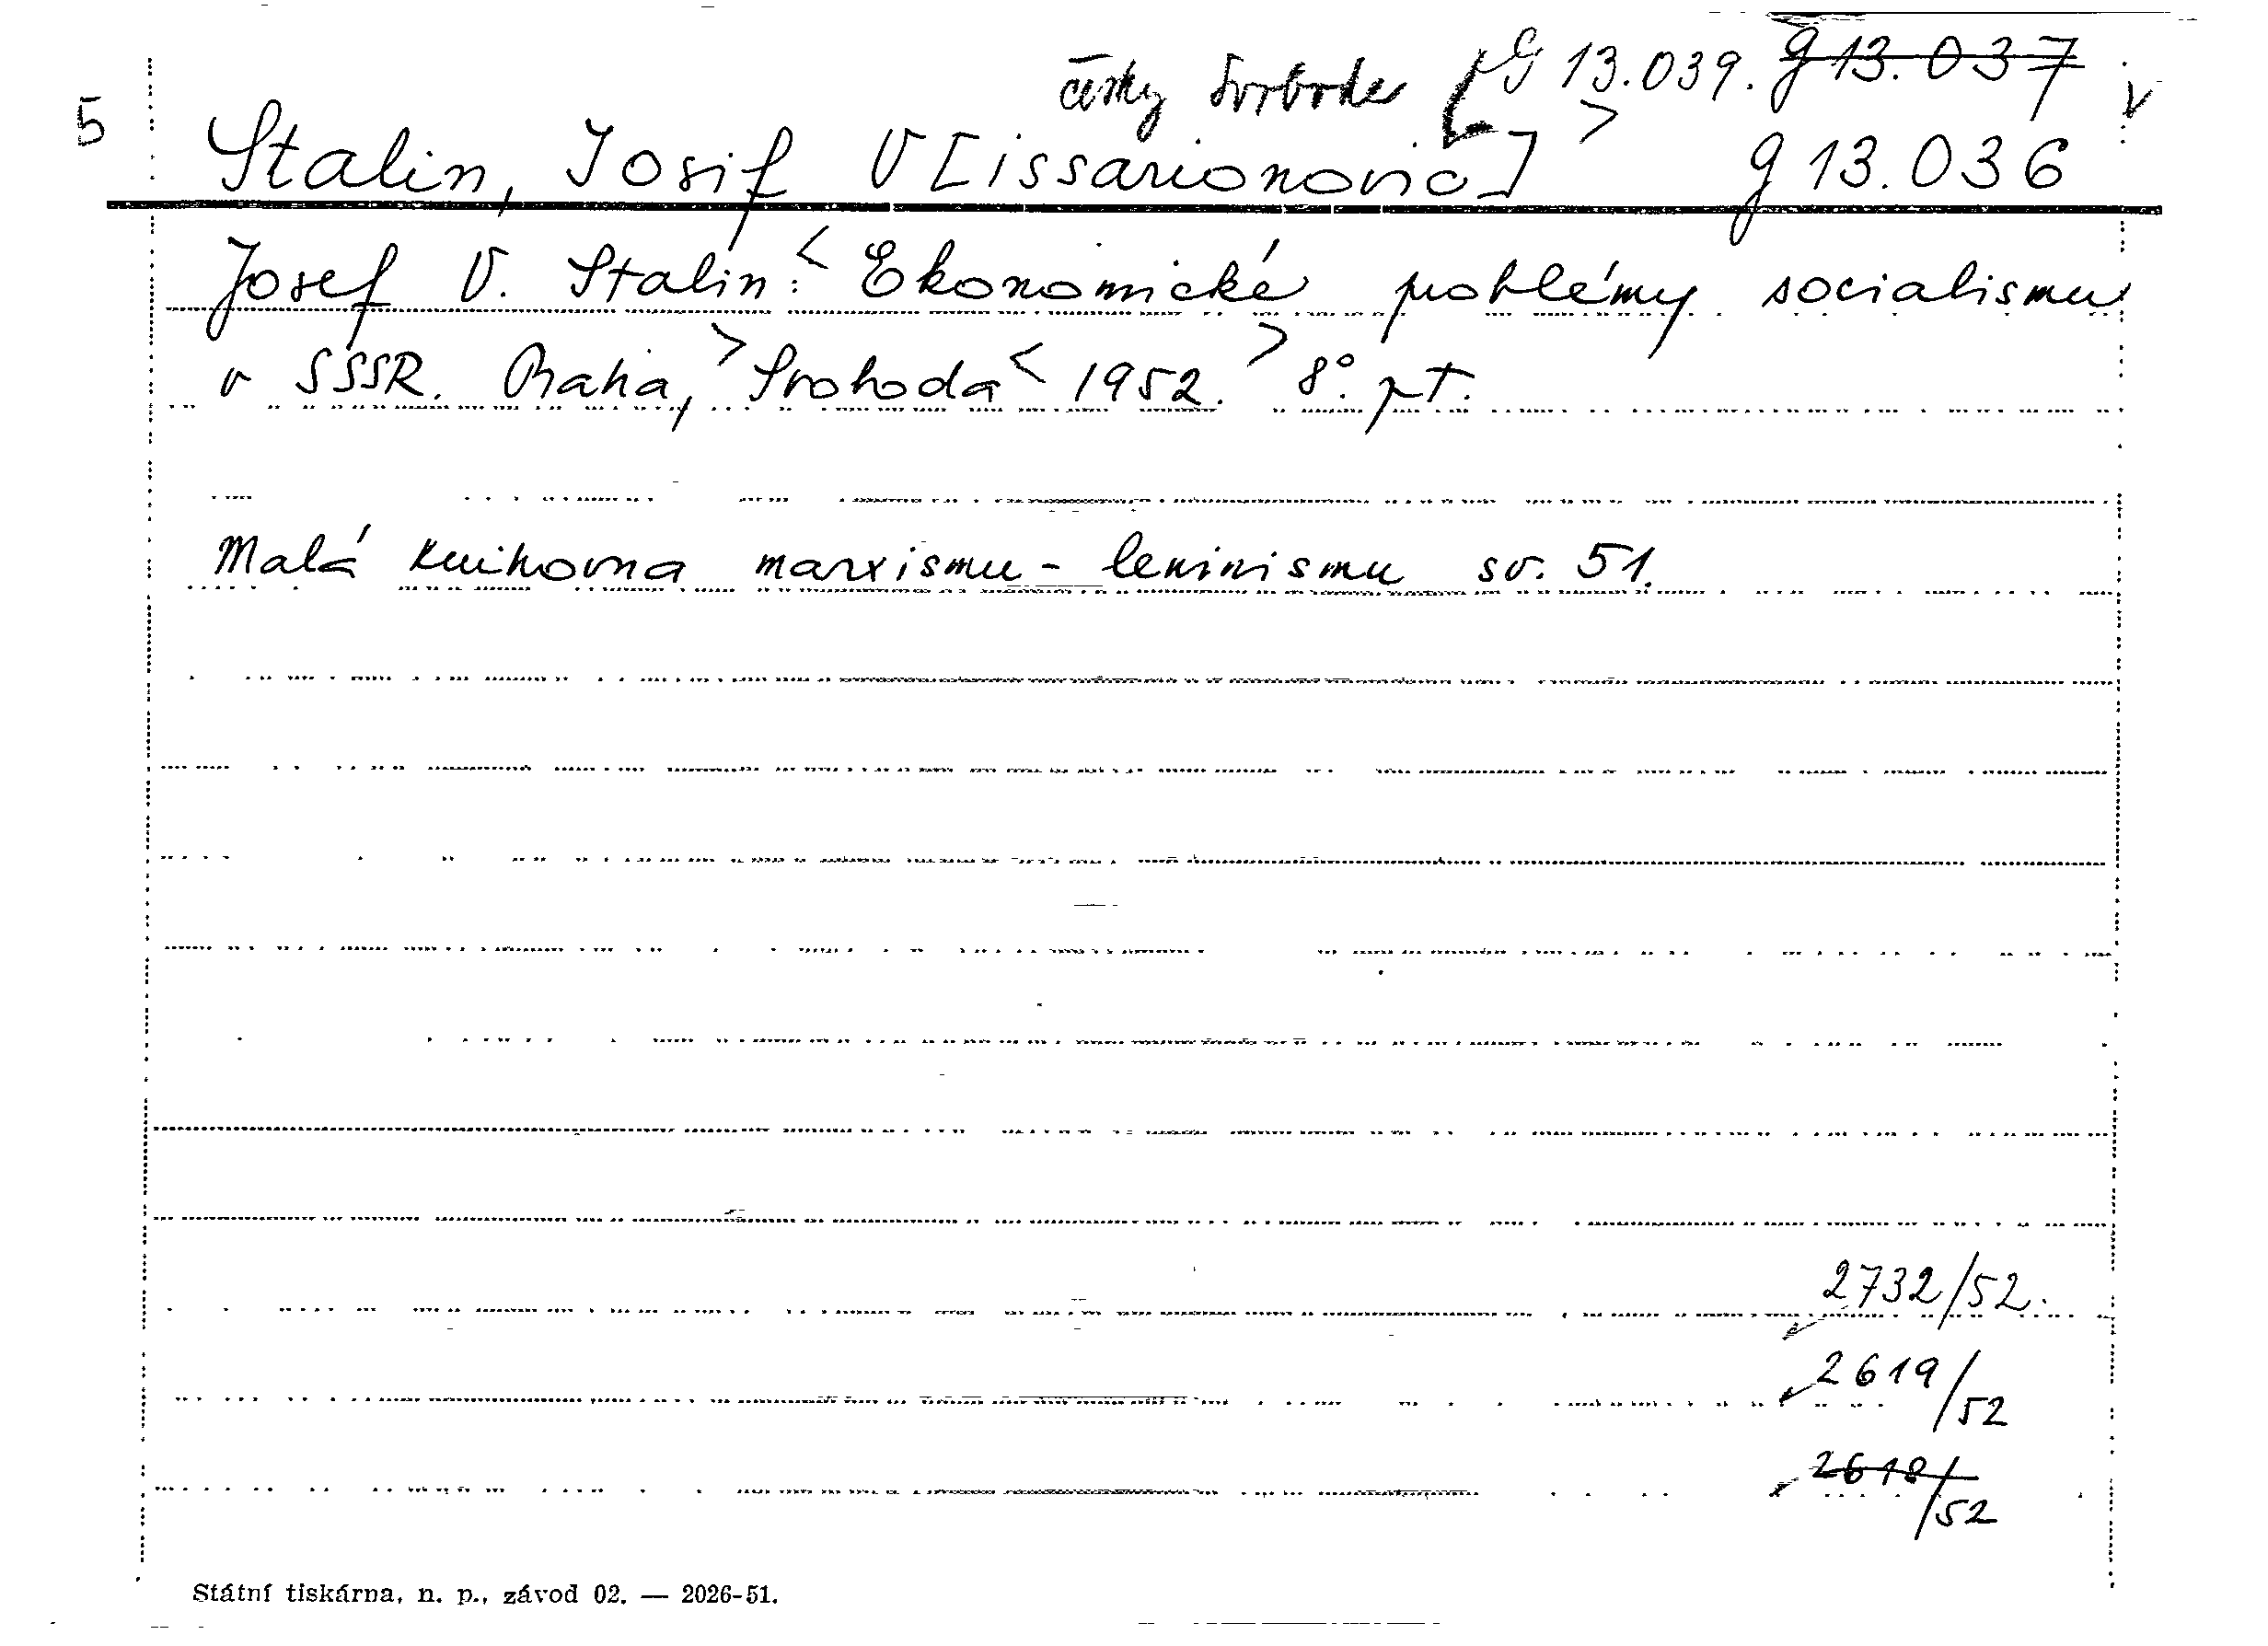 česky Svoboda G 13.039. g 13.037 v
5 Stalin, Josif V[issarionovič] > g 13.036
Josef V. Stalin: < Ekonomické problémy socialismu
v SSSR. Praha, > Svoboda < 1952. > 8°. pt.
Malá knihovna marxismu - leninismu sv. 51.
2732/52.
2619/52
2618/52
Státní tiskárna, n. p., závod 02. — 2026-51.